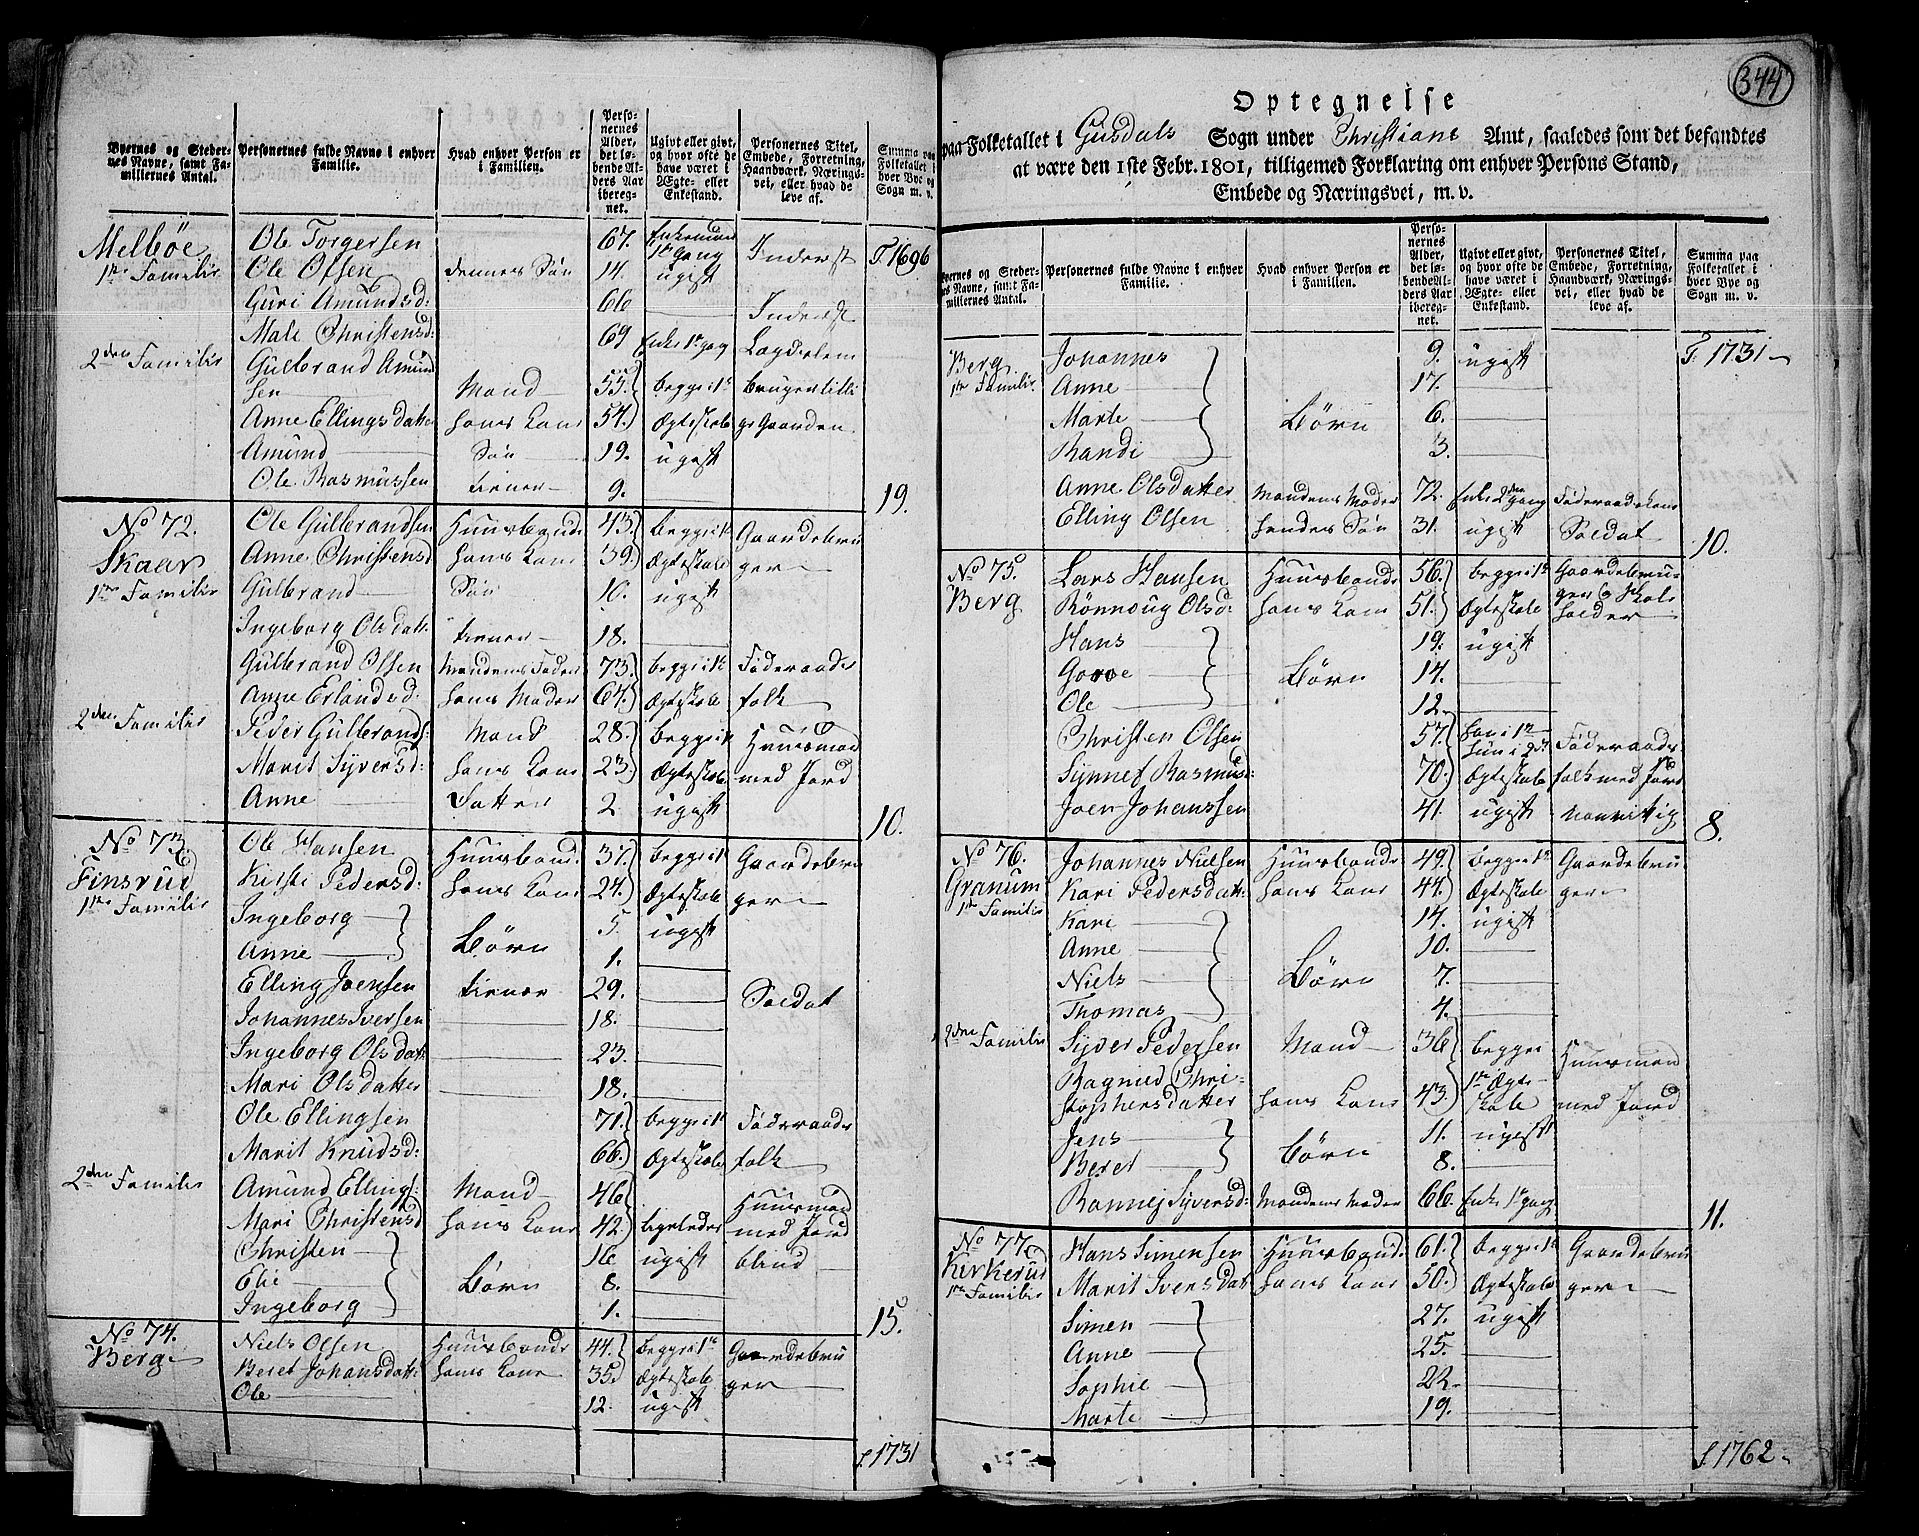 344
Byernes og Stedernes Navne, samt Familiernes Antal.
Personernes fulde Navne i enhver Familie.
Hvad enhver Person er i Familien.
Personernes Alder, det løbende Alders Aar iberegnet.
Ugivt eller givt, og hvor ofte de have været i Ægte- eller Enkestand.
Personernes Titel, Embede, Forretning, Haandværk, Næringsvei, eller hvad de leve af.
Summa paa Folketallet i hver Bye og Sogn m. v.
Melbøe Ole Torgersen 67. Enkemand 1te Gang Inderst T. 1696
1te Familie Ole Olsen dennes Søn 14. ugift
Guri Amundsd: 66 Inderst
Male Christensd: 69 Enke 1te gang Lægdslem
2den Familie Gulbrand Amund
sen Mand 55. begge i 1te bruger tilli
Anne Ellings datter hans Kone 54. Ægteskab ge Gaarden
Amund Søn 19. ugift
Ole Rasmussen tiener 9. 19.
No 72. Ole Gulbrandsen Huusbonde 43. begge i 1te Gaardebru
Skaar Anne Christensd hans Kone 39. Ægteskab ger
1te Familie Gulbrand Søn 10. ugift
Ingeborg Olsdatt. tiener 18.
Gulbrand Olsen Mandens Fader 73. begge i 1te Føderaads
Anne Erlandsd: hans Moder 64. Ægteskab folk
2den Familie Peder Gulbrands: Mand 28. begge i 1te Huusmand
Marit Syversd: hans Kone 23. Ægteskab med Jord
Anne Datter 2. ugift 10.
No 73. Ole Hansen Huusbonde 37. begge i 1te Gaardebru
Finsrud Kirsti Pedersd: hans Kone 24. Ægteskab ger
1te Familie Ingeborg 5. ugift
Anne Børn 1.
Elling Joensen tiener 29. Soldat
Johannes Iversen 18.
Ingeborg Olsdatt: 23.
Mari Olsdatter 18.
Ole Ellingsen 71. begge i 1te Føderaads
Marit Knudsd: 66. Ægteskab folk
2den Familie Amund Ellings: Mand 46 Huusmand
Mari Christensd hans Kone 42. ligeledes med Jord
Christen 16 ugift blind
Elie Børn 8.
Ingeborg 1. 15.
No 74. Niels Olsen Huusbonde 44. begge i 1te Gaardebru
Berg Beret Johansdatt: hans Kone 35. Ægteskab ger
Ole 12. ugift
S. 1731
Optegnelse
paa Folketallet i Gusdals Sogn under Christians Amt, saaledes som det befandtes
at være den 1ste Febr. 1801, tilligemed Forklaring om enhver Persons Stand,
Embede og Næringsvei, m. v.
Byernes og Stedernes Navne, samt Familiernes Antal.
Personernes fulde Navne i enhver Familie.
Hvad enhver Person er i Familien.
Personernes Alder, det løbende Alders Aar iberegnet.
Ugivt eller givt, og hvor ofte de have været i Ægte- eller Enkestand.
Personernes Titel, Embede, Forretning, Haandværk, Næringsvei, eller hvad de leve af.
Summa paa Folketallet i hver Bye og Sogn m. v.
Berg Johannes 9. ugift T. 1731
1te Familie Anne 17.
Marte Børn 6.
Randi 3.
Anne Olsdatter Mandens Moder 72. Enke 2den gang Føderaadskone
Elling Olsen hendes Søn 31. ugift Soldat 10.
No 75. Lars Hansen Huusbonde 56. begge i 1te Gaardebru-
Berg Rønnoug Olsd: hans Kone 51. Ægteskab ger og Skol holder
Hans 19. ugift
Goroe Børn 14.
Ole 12.
Christen Olsen 57. han i 1te hun i 2det Føderaads
Synnef Rasmusd: 70. Ægteskab folk med Jord
Joen Johanssen 41. ugift vanvittig 8.
No 76. Johannes Nielsen Huusbonde 49. begge i 1te Gaardebru
Granum Kari Pedersdatt: hans Kone 44. Ægteskab ger
1te Familie Kari 14. ugift
Anne 10.
Niels Børn 7.
Thomas 4.
2den Familie Syver Pedersen Mand 36 begge Huusmand
Ragnild Chri-
stophersdatter hans Kone 43. 1te Ægte-skab med Jord
Jens 11. ugift
Beret Børn 8.
Rannej Syversd: Mandens Moder 66. Enke 1te gang 11.
No 77. Hans Simensen Huusbonde 61. begge i 1te Gaardebru
Kirkerud Marit Iversdat: hans Kone 50. Ægteskab ger
1te Familie Simen 27. ugift
Anne 25.
Sophie 22.
Marte 19.
S. 1762